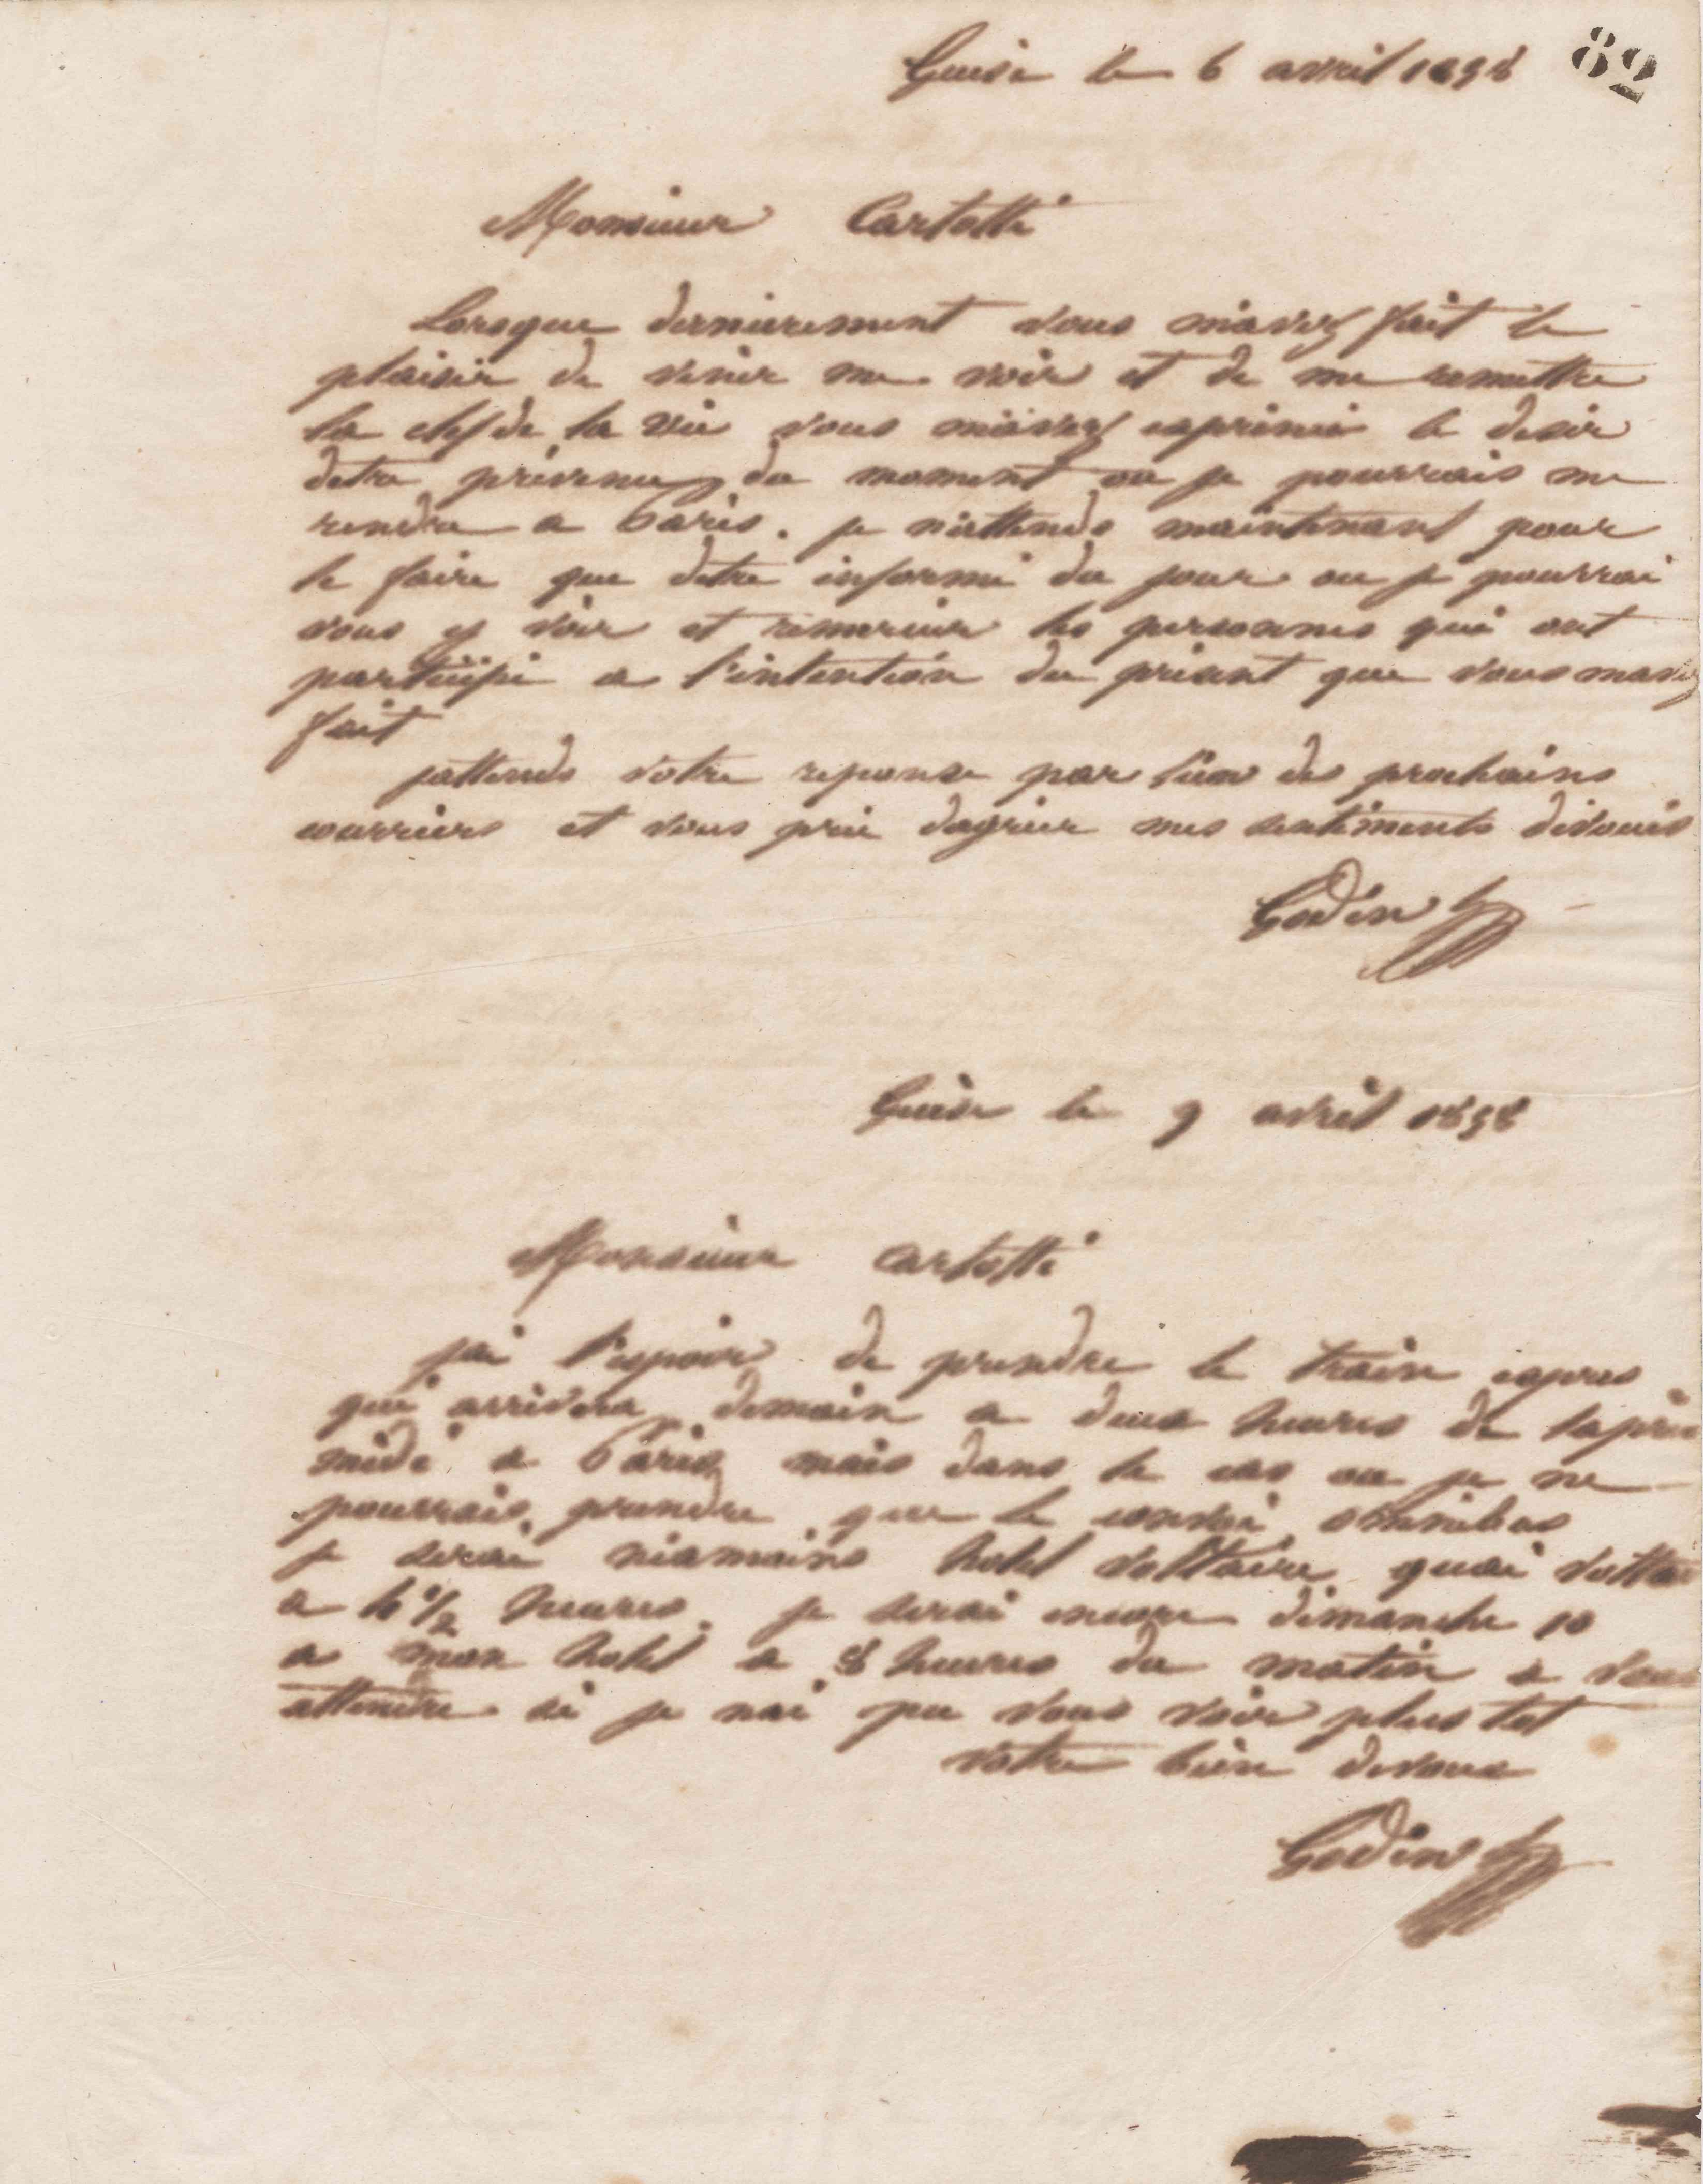 82
Guise le 6 avril 1858
Monsieur Cartotti
Lorsque dernierement vous m'avez fait le
plaisir de venir me voir et de me remettre
la clef de la vie vous m'avez exprimé le desir
detre prevenu du moment ou je pourrais me
rendre a Paris. je n'attends maintenant pour
le faire que detre informé du jour ou je pourrai
vous y voir et remercier les personnes qui ont
participé a l'intention du présent que vous mavez
fait
jattends votre reponse par l'un des prochains
courriers et vous prie dagréer mes sentiments dévoués
Godin
Guise le 9 avril 1858
Monsieur Cartotti
jai l'espoir de prendre le train express
qui arrivera demain a deux heures de lapres
midi a Paris mais dans le cas ou je ne
pourrais prendre que le convoi omnibus
je serai néamoins hotel voltaire quai voltaire
a 4 1/2 heures. je serai encore dimanche 10
a mon hotel a 8 heures du matin a vous
attendre si je nai pu vous voir plus tot
votre bien devoué
Godin